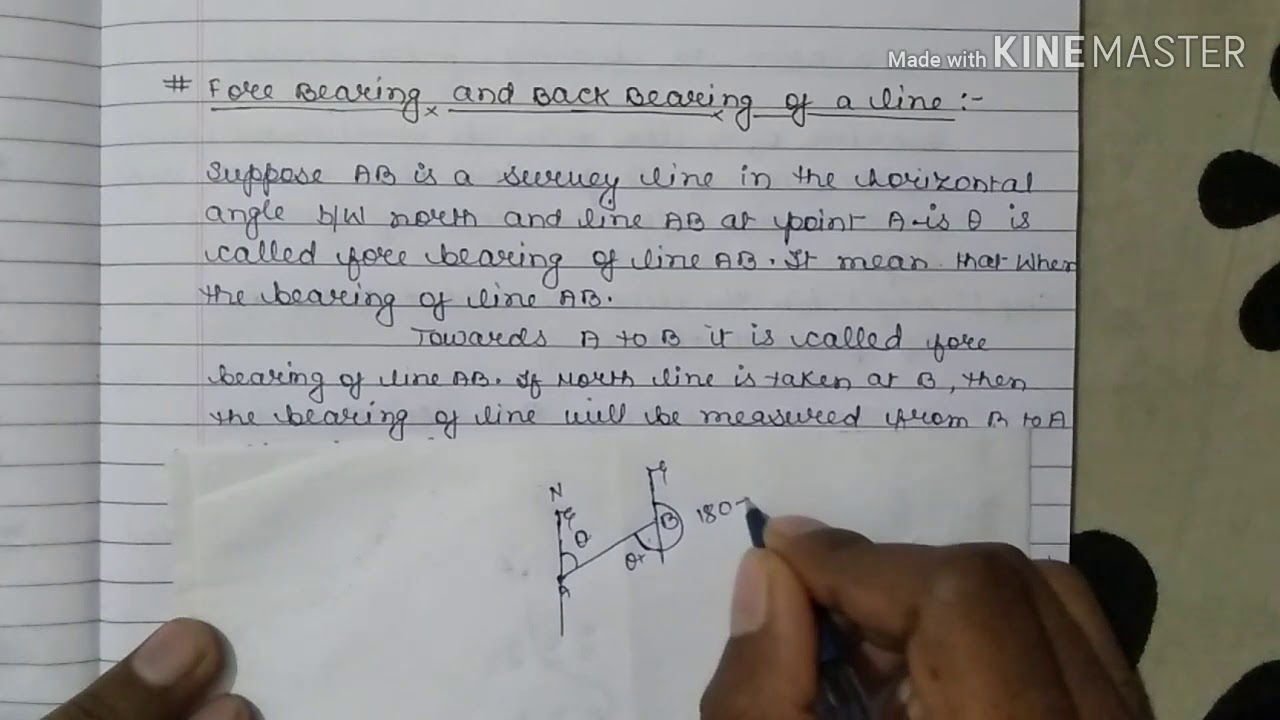 Made with KINEMASTER
# Fore Bearing and Back Bearing of a line :-
Suppose AB is a survey line in the horizontal
angle b/w north and line AB at point A is θ is
called fore bearing of line AB. It mean that when
the bearing of line AB.
Towards A to B it is called fore
bearing of line AB. If North line is taken at B, then
the bearing of line will be measured from B to A
N
θ
B
180
θ+
A